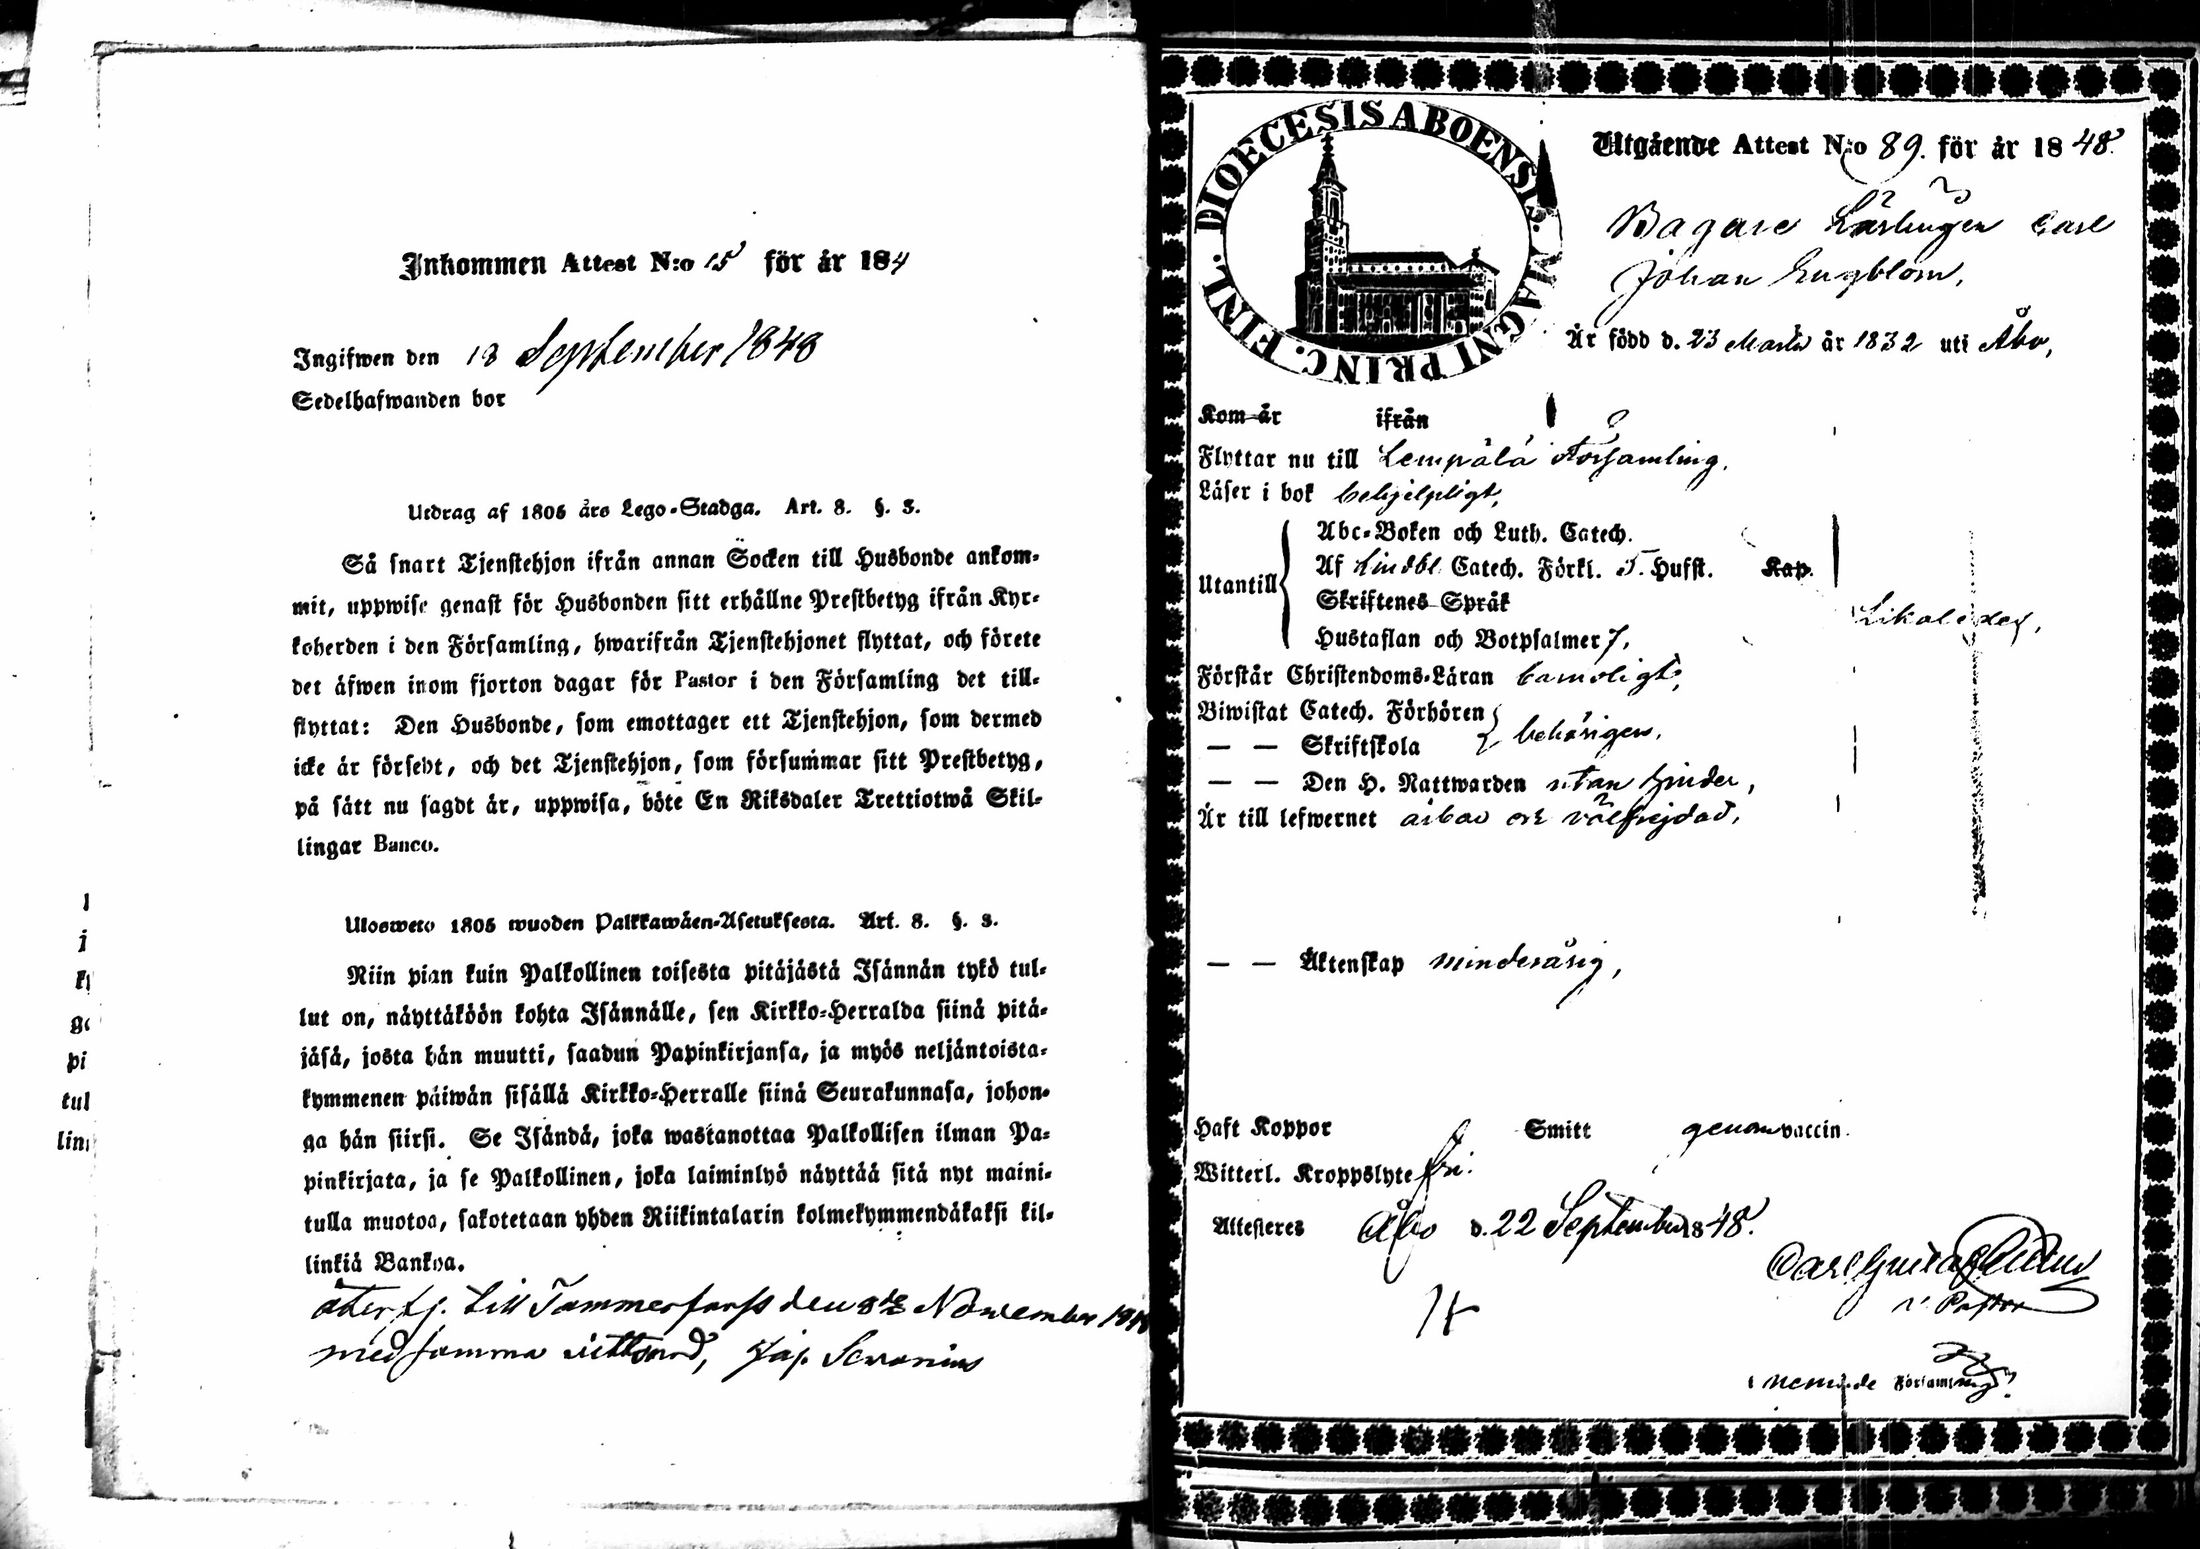 Inkommen Attest N:o 15 för år 184
Ingifwen den 18 September 1848
Sedelhafwanden bor
Utdrag af 1805 års Lego-Stadga. Art. 8. §. 3.
Så snart Tjenstehjon ifrån annan Socken till Husbonde ankom-
mit, uppwise genast för Husbonden sitt erhållne Prestbetyg ifrån Kyr-
koherden i den Församling, hwarifrån Tjenstehjonet flyttat, och förete
det äfwen inom fjorton dagar för Pastor i den Församling det till-
flyttat: Den Husbonde, som emottager ett Tjenstehjon, som dermed
icke är försedt, och det Tjenstehjon, som försummar sitt Prestbetyg,
på sätt nu sagdt är, uppwisa, böte En Riksdaler Trettiotwå Skil-
lingar Banco.
Ulosweto 1805 wuoden Palkkawäen-Asetuksesta. Art. 8. §. 3.
Niin pian kuin Palkollinen toisesta pitäjästä Isännän tykö tul-
lut on, näyttäköön kohta Isännälle, sen Kirkko-Herralda siinä pitä-
jäsä, josta hän muutti, saadun Papinkirjansa, ja myös neljäntoista-
kymmenen päiwän sisällä Kirkko-Herralle siinä Seurakunnasa, johon-
ga hän siirsi. Se Isändä, joka wastanottaa Palkollisen ilman Pa-
pinkirjata, ja se Palkollinen, joka laiminlyö näyttää sitä nyt maini-
tulla muotoa, sakotetaan yhden Riikintalarin kolmekymmendäkaksi kil-
linkiä Bankoa.
återfl. till Tammerforss den 8de November 1848
med samma vittsord,
DIOECESIS ABOENSIS. MAGNI PRINC. FINL.
Utgående Attest N:o 89. för år 1848.
Bagare Lärlingen Carl
Johan Engblom,
Är född d. 23 Martii år 1832 uti Åbo,
Kom år ifrån
Flyttar nu till Lempälä Församling,
Läser i bok behjelpligt,
Utantill
Abc-Boken och Luth. Catech.
Af Lindbl. Catech. Förkl. 5. Hufst. Kap.
Skriftenes Språk
Hustaflan och Botpsalmer 7,
Likaledes,
Förstår Christendoms-Läran barnsligt,
Biwistat Catech. Förhören
— — Skriftskola behörigen,
— — Den H. Nattwarden utan hinder,
Är till lefwernet ärbar och välfrejdad,
— — Äktenskap minderårig,
Haft Koppor Smitt genom vaccin.
Witterl. Kroppslyte fri.
Attesteres Åbo d. 22 September 1848.
Carl Gustaf
v. Pastor
i nemnde Församling